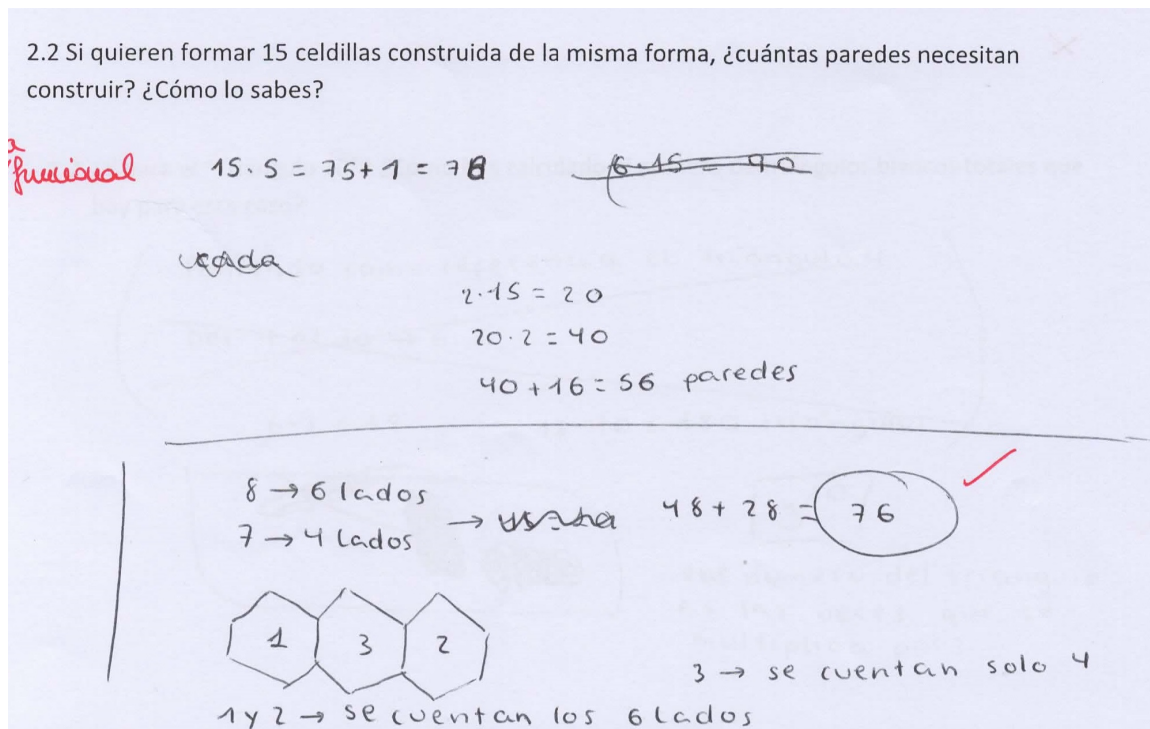 2.2 Si quieren formar 15 celdillas construida de la misma forma, ¿cuántas paredes necesitan
construir? ¿Cómo lo sabes?
funcional
15·5 = 75+1 = 76
6·15 = 90
2·15 = 20
20·2 = 40
40+16 = 56 paredes
8 → 6 lados
7 → 4 lados
→
48+28 = 76
1 3 2
3 → se cuentan solo 4
1 y 2 → se cuentan los 6 lados